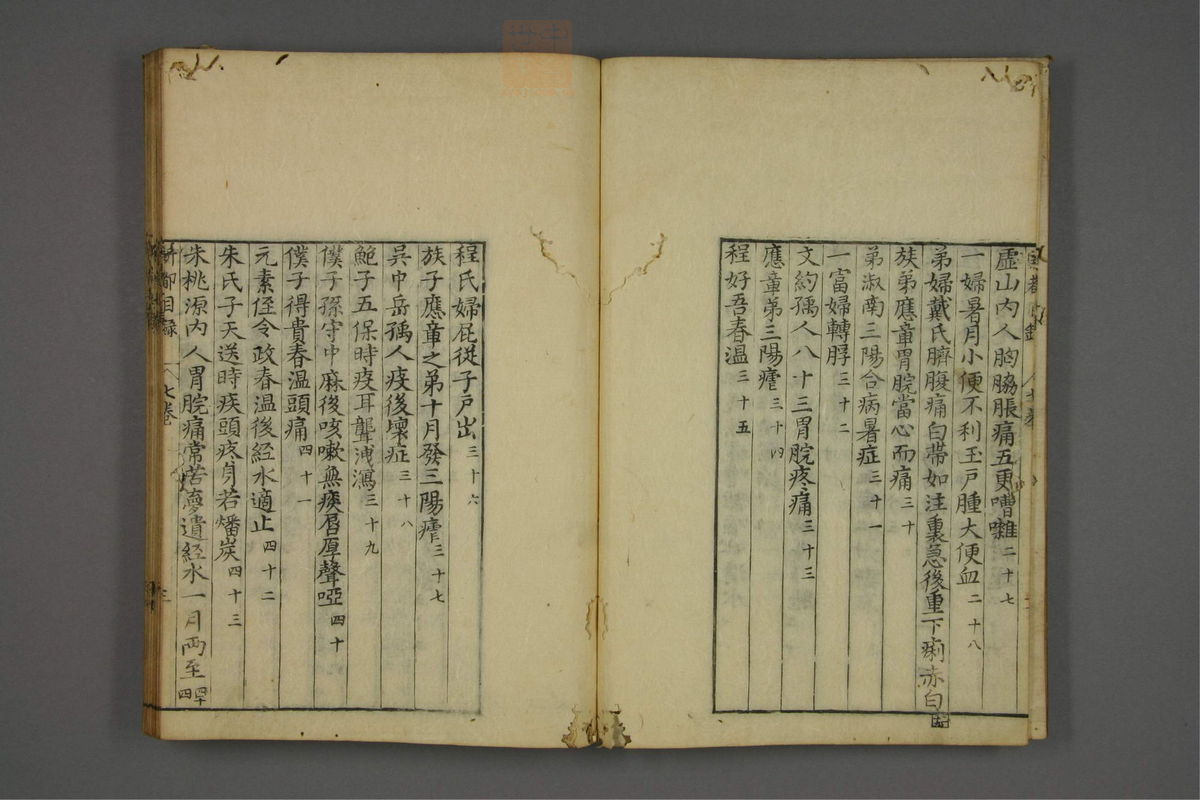 虛山內人胸脇脹痛五更嘈雜二十七
一婦暑月小便不利玉戶腫大便血二十八
弟婦戴氏臍腹痛白帶如注裏急後重下痢赤白
族弟應章胃脘當心而痛三十
弟淑南三陽合病暑症三十一
一富婦轉脬三十二
文約孺人八十三胃脘疼痛三十三
應章弟三陽瘧三十四
程好吾春溫三十五
程氏婦屁從子戶出三十六
族子應章之弟十月發三陽瘧三十七
吳中岳孺人疫後壞症三十八
鮑子五保時疫耳聾洩瀉三十九
僕子孫守中麻後咳嗽無痰唇厚聲啞四十
僕子得貴春溫頭痛四十一
元素侄令政春溫後經水適止四十二
朱氏子天送時疾頭疼身若燔炭四十三
朱桃源內人胃脘痛常若夢遺經水一月兩至四十四
新都目錄 七卷